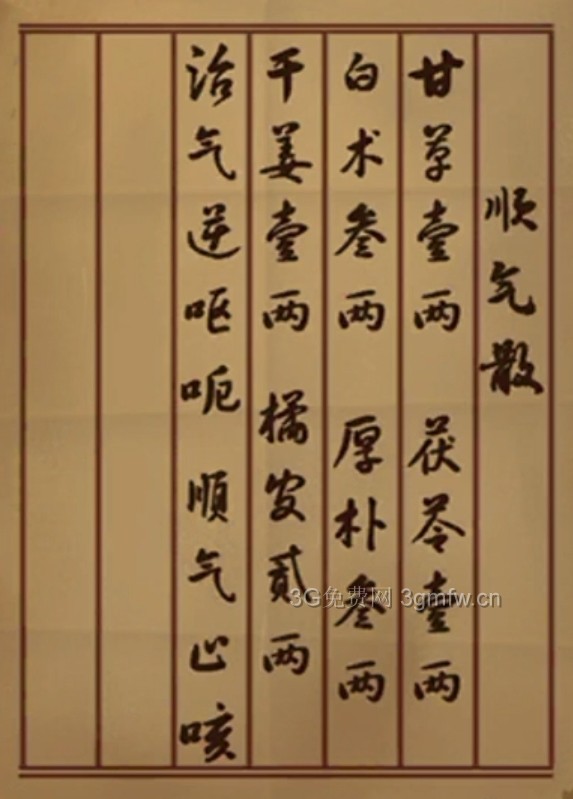 顺气散
甘草壹两 茯苓壹两
白术叁两 厚朴叁两
干姜壹两 橘皮贰两
治气逆呕呃 順气止咳
3G免费网 3gmfw.cn